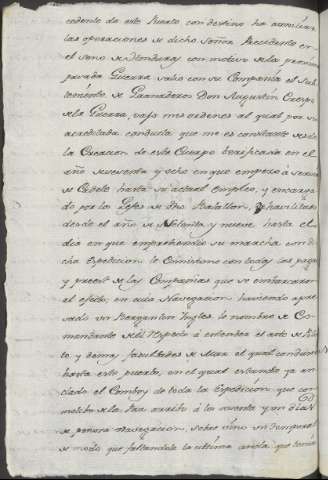 cedente de este Puerto con destino ha auxiliar
las operaciones de dicho Señor Presidente en
el seno de Honduras con motivo de la proxima
pasada Guerra salio con su Compañia el Sub
teniente de Granaderos Don Augustin Crespo
de la Guerra, vajo mis ordenes al qual por su
acreditada conducta que me es constante desde
la Creacion de este Cuerpo berificada en el
año sesenta y ocho en que empezó á servir
de Cadete hasta su actual Empleo, y encarga
do por los Gefes de dho Batallon, y havilitado
desde el año de Setenta y nueve hasta el
dia en que emprehendio su marcha con di
cha Expedicion le Comisione con todas las pagas
y prest de las Compañias que se embarcaron
al efecto; en cuia Navegacion haviendo apre
sado un Bergantin Ingles le nombre de Co
mandante de él Respecto á entender el arte de Pilo
to y demas facultades de Mar el qual condujo
hasta este puerto, en el qual estando ya an
clado el Comboy de toda la Expedicion que con
de la Paz arribo á los noventa y un dias
de penosa Navegacion, sobre vino un temporal
de modo que faltandole la ultima ancla que tenia